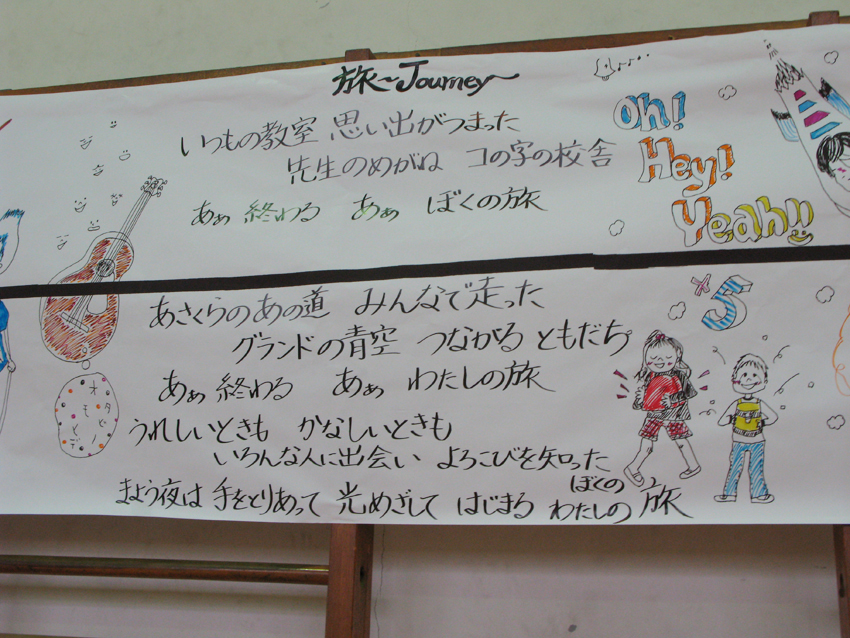 旅〜Journey〜
いつもの教室 思い出がつまった
先生のめがね コの字の校舎
あぁ 終わる あぁ ぼくの旅
Oh!
Hey!
Yeah!!
あさくらのあの道 みんなで走った
グランドの青空 つながる ともだち
あぁ 終わる あぁ わたしの旅
うれしいときも かなしいときも
いろんな人に出会い よろこびを知った
まよう夜は 手をとりあって 光めざして はじまる ぼくの わたしの 旅
*5